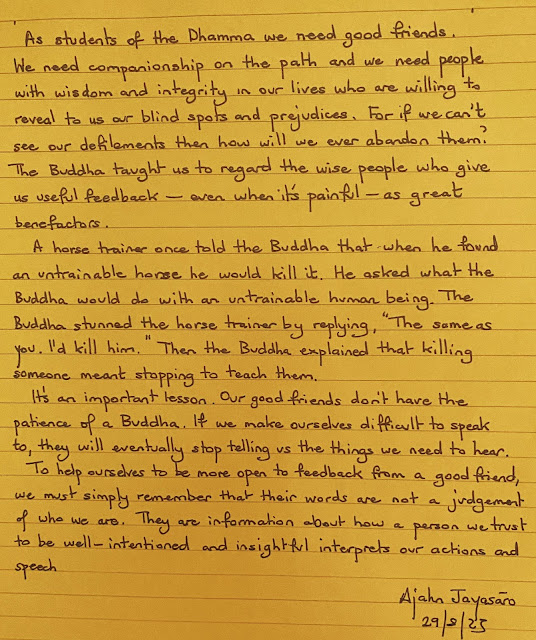 As students of the Dhamma we need good friends.
We need companionship on the path and we need people
with wisdom and integrity in our lives who are willing to
reveal to us our blind spots and prejudices. For if we can't
see our defilements then how will we ever abandon them?
The Buddha taught us to regard the wise people who give
us useful feedback – even when it's painful – as great
benefactors.
A horse trainer once told the Buddha that when he found
an untrainable horse he would kill it. He asked what the
Buddha would do with an untrainable human being. The
Buddha stunned the horse trainer by replying, "The same as
you. I'd kill him." Then the Buddha explained that killing
someone meant stopping to teach them.
It's an important lesson. Our good friends don't have the
patience of a Buddha. If we make ourselves difficult to speak
to, they will eventually stop telling us the things we need to hear.
To help ourselves to be more open to feedback from a good friend,
we must simply remember that their words are not a judgement
of who we are. They are information about how a person we trust
to be well-intentioned and insightful interprets our actions and
speech
Ajahn Jayasāro
29/8/25